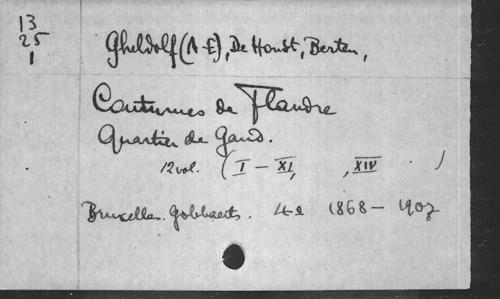 13
25
1
Gheldolf (A-E), De Hondt, Berten,
Coutumes de Flandre
Quartier de Gand.
12 vol. (I – XI, , XIV . )
Bruxelles. Gobbaerts. 4º 1868 – 1903